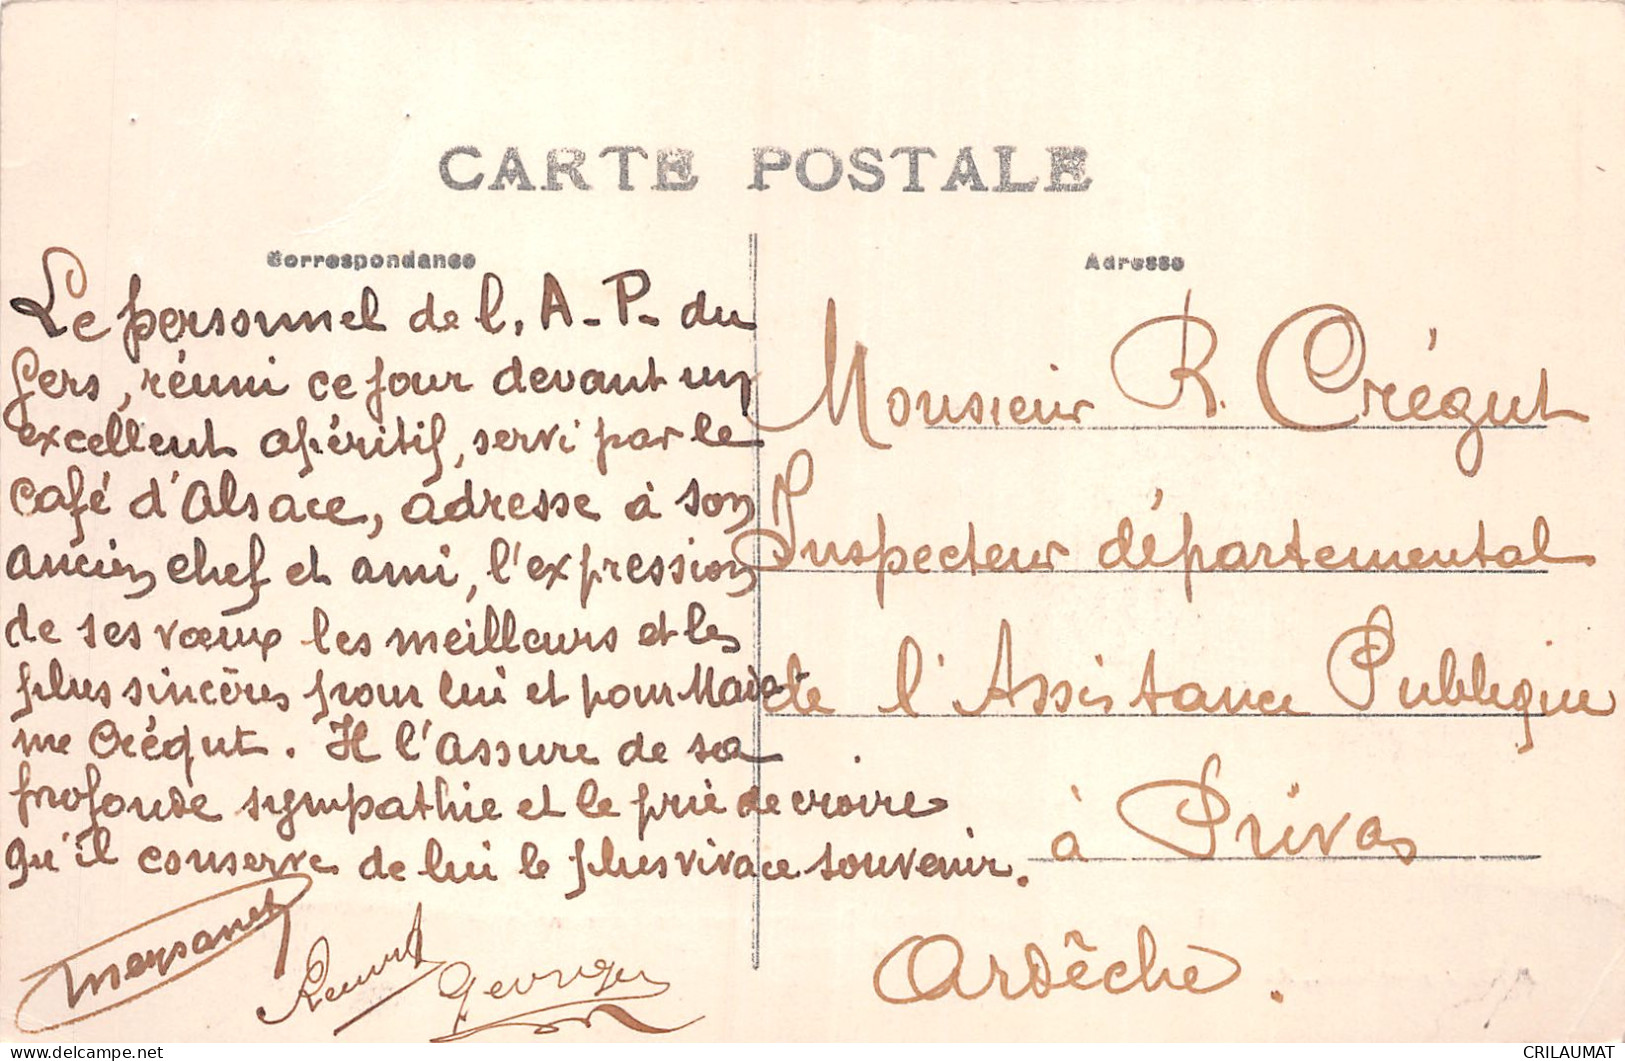 CARTE POSTALE
Correspondance
Le personnel de l'A-P- du
Gers, réuni ce jour devant un
excellent apéritif, servi par le
café d'Alsace, adresse à son
ancien chef et ami, l'expression
de ses vœux les meilleurs et les
plus sincères pour lui et pour Mada-
me Crégut. Il l'assure de sa
profonde sympathie et le prie de croire
qu'il conserve de lui le plus vivace souvenir.
Adresse
Monsieur R. Crégut
Inspecteur départemental
de l'Assistance Publique
à Privas
Ardèche.
delcampe.net
CRILAUMAT